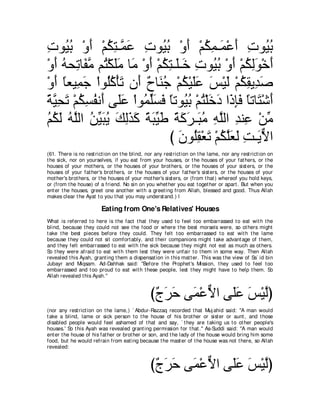 بُيُوتِ أَعْمَـمِكُمْ أَوْ بُيُوتِ عَمَّـتِكُمْ أَوْ بُيُوتِ
أَخْوَلِكُمْ أَوْ بُيُوتِ خَـلَـتِكُمْ أَوْ مَا مَلَكْتُم مَّفَاتِحهُ أَوْ
صَدِيقِكُمْ لَيْسَ عَلَيْكُمْ جُنَاحٌ أَن تَأْكُلُواْ جَمِيعاً أَوْ
أَشْتَاتاً فَإِذَا دَخَلْتُمْ بُيُوتاً فَسَلِّمُواْ عَلَى أَنفُسِكُمْ تَحِيَّةً
مِّنْ عِندِ اللَّهِ مُبَـرَكَةً طَيِّبَةً كَذَلِكَ يُبَيِّنُ اللَّهُ لَكُمُ
الاٌّيَـتِ لَعَلَّكُمْ تَعْقِلُونَ )
(61. There is no restriction on the blind, nor any restriction on the lame, nor any restriction on
the sick, nor on yourselves, if you eat from your houses, or the houses of your fathers, or the
houses of your mothers, or the houses of your brothers, or the houses of your sisters, or the
houses of your father's brothers, or the houses of your father's sisters, or the houses of your
mother's brothers, or the houses of your mother's sisters, or (from that) whereof you hold keys,
or (from the house) of a friend. No sin on you whether you eat together or apart. But when you
enter the houses, greet one another with a greeting from Allah, blessed and good. Thus Allah
makes clear the Ayat to you that you may understand.) f
Eating from One's Relatives' Houses
What is referred to here is the fact that they used to feel too embarrassed to eat with the
blind, because they could not see the food or where the best morsels were, so others might
take the best pieces before they could. They felt too embarrassed to eat with the lame
because they could not sit comfortably, and their companions might take advantage of them,
and they felt embarrassed to eat with the sick because they might not eat as much as others.
So they were afraid to eat with them lest they were unfair to them in some way. Then Allah
revealed this Ayah, granting them a dispensation in this matter. This was the view of Sa`id bin
Jubayr and Miqsam. Ad-Dahhak said: "Before the Prophet's Mission, they used to feel too
embarrassed and too proud to eat with these people, lest they might have to help them. So
Allah revealed this Ayah."
(لَّيْسَ عَلَى الاٌّعْمَى حَرَجٌ)
(nor any restriction on the lame,) `Abdur-Razzaq recorded that Mujahid said: "A man would
take a blind, lame or sick person to the house of his brother or sister or aunt, and those
disabled people would feel ashamed of that and say, `they are taking us to other people's
houses.' So this Ayah was revealed granting permission for that." As-Suddi said: "A man would
enter the house of his father or brother or son, and the lady of the house would bring him some
food, but he would refrain from eating because the master of the house was not there, so Allah
revealed:
(لَّيْسَ عَلَى الاٌّعْمَى حَرَجٌ)